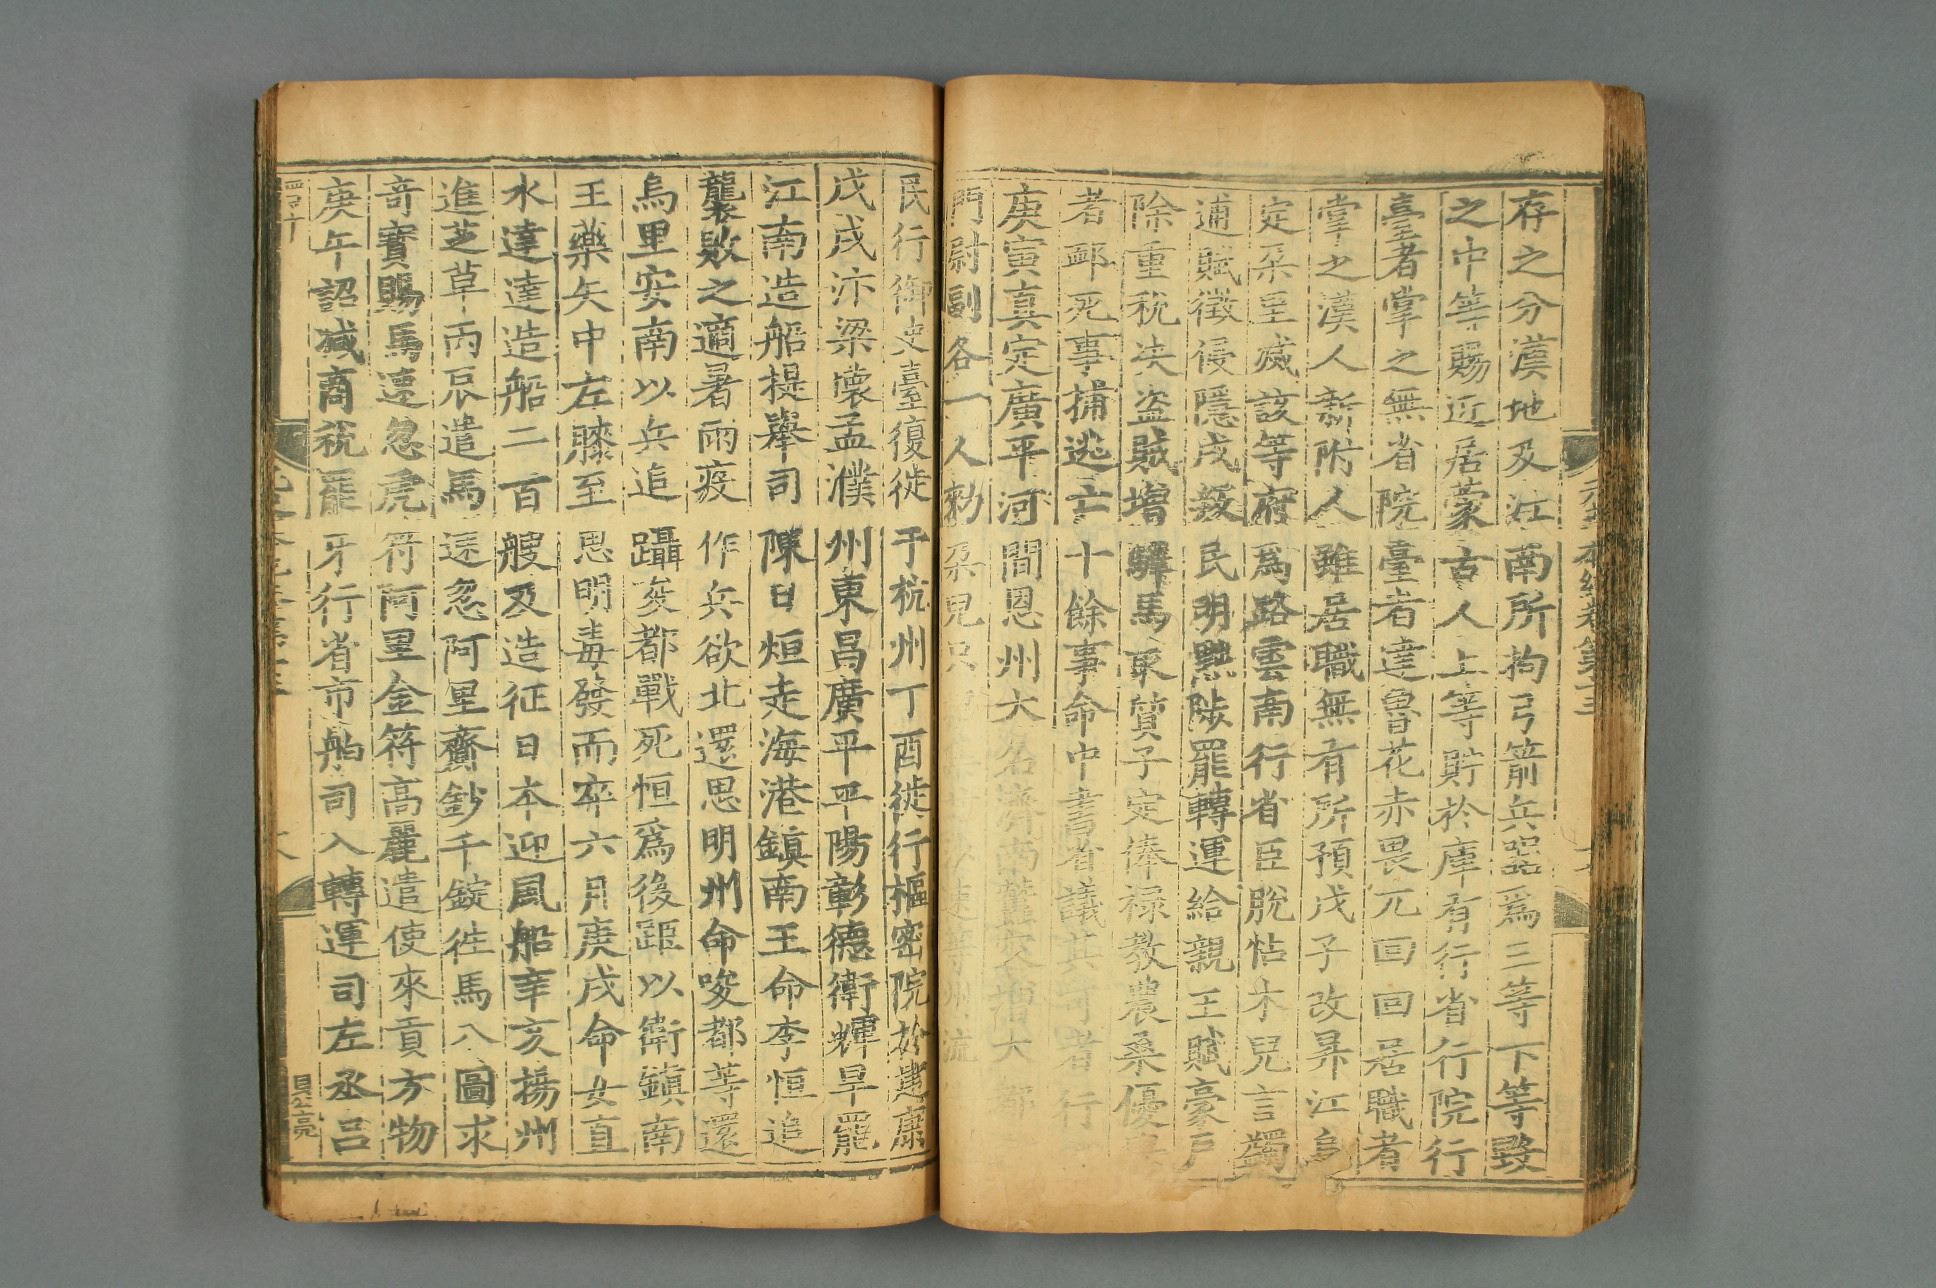 存之分漢地及江南所拘弓箭兵器爲三等下等毀
之中等賜近居蒙古人上等貯於庫有行省行院行
臺者掌之無省院臺者達魯花赤畏兀回回居職者
掌之漢人新附人雖居職無有所預戊子改畀江烏
定朶至滅該等府爲路雲南行省臣脫帖木兒言蠲
逋賦徵侵隱戍叛民明黜陟罷轉運給親王賦豪戶
除重稅决盜賊增驛馬取質子定俸祿教農桑優
者䘏死事捕逃亡十餘事命中書省議其可者行
庚寅真定廣平河間恩州大名濟南蠶災增大都
門尉副各一人勑朶兒只
民行御史臺復徙于杭州丁酉徙行樞密院於建康
戊戌汴梁懷孟濮州東昌廣平平陽彰德衛輝旱罷
江南造船提舉司陳日烜走海港鎮南王命李恒追
襲敗之適暑雨疫作兵欲北還思明州命唆都等還
烏里安南以兵追躡唆都戰死恒爲後距以衛鎮南
王藥矢中左膝至思明毒發而卒六月庚戌命女直
水達達造船二百艘及造征日本迎風船辛亥揚州
進芝草丙辰遣馬速忽阿里齎鈔千錠往馬八圖求
奇寶賜馬速忽虎符阿里金符高麗遣使來貢方物
庚午詔减商稅罷牙行省市舶司入轉運司左丞呂